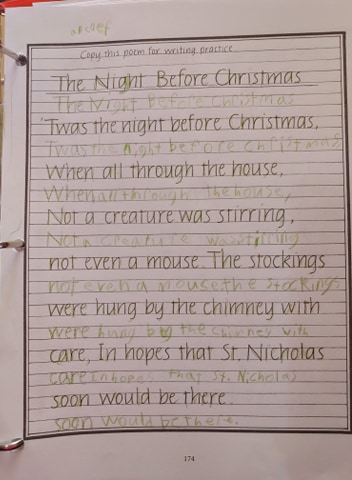 abcdef
Copy this poem for writing practice
The Night Before Christmas
The Night Before Christmas
'Twas the night before Christmas,
Twas the night before Christmas
When all through the house,
When all through the house,
Not a creature was stirring,
Not a creature was stirring
not even a mouse. The stockings
not even a mouse the stockings
were hung by the chimney with
were hung by the chimney with
care, In hopes that St. Nicholas
care in hopes that St. Nicholas
soon would be there.
soon would be there.
174